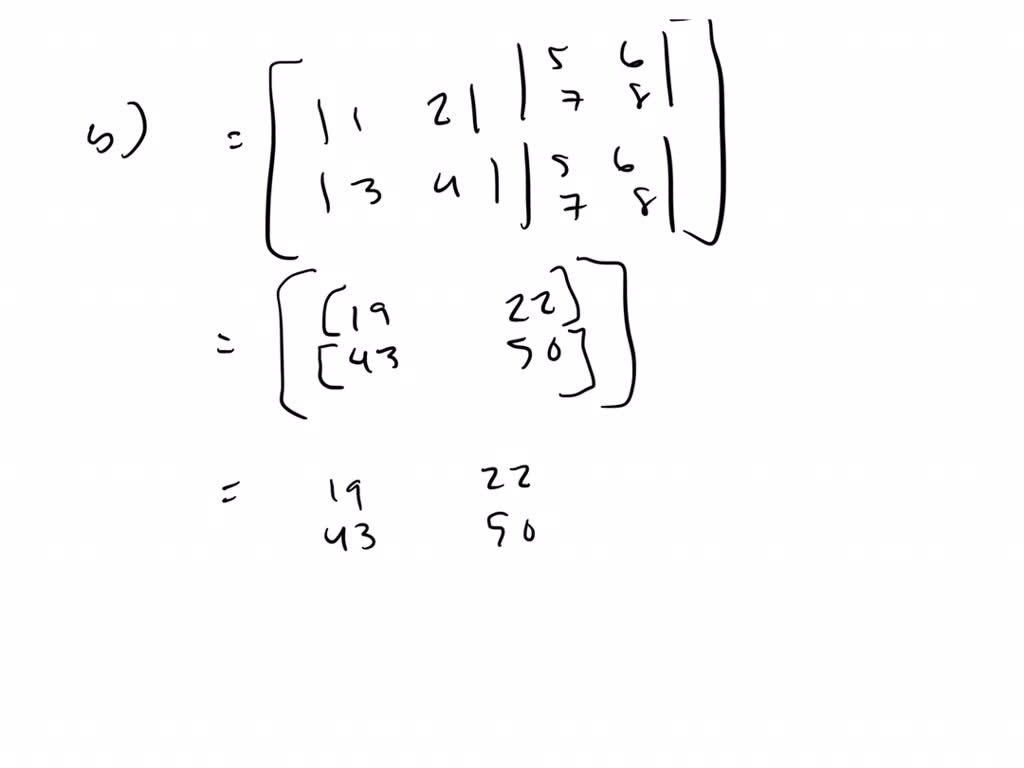 b) = [ | 1 2 | | 5 6 |
7 8 |
| 3 4 | | 5 6 |
7 8 | ]
= [ [19 22]
[43 50] ]
= 19 22
43 50